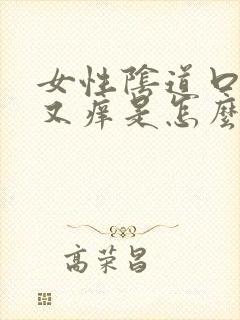 女性陰道口
又痒是怎麼
高荣昌